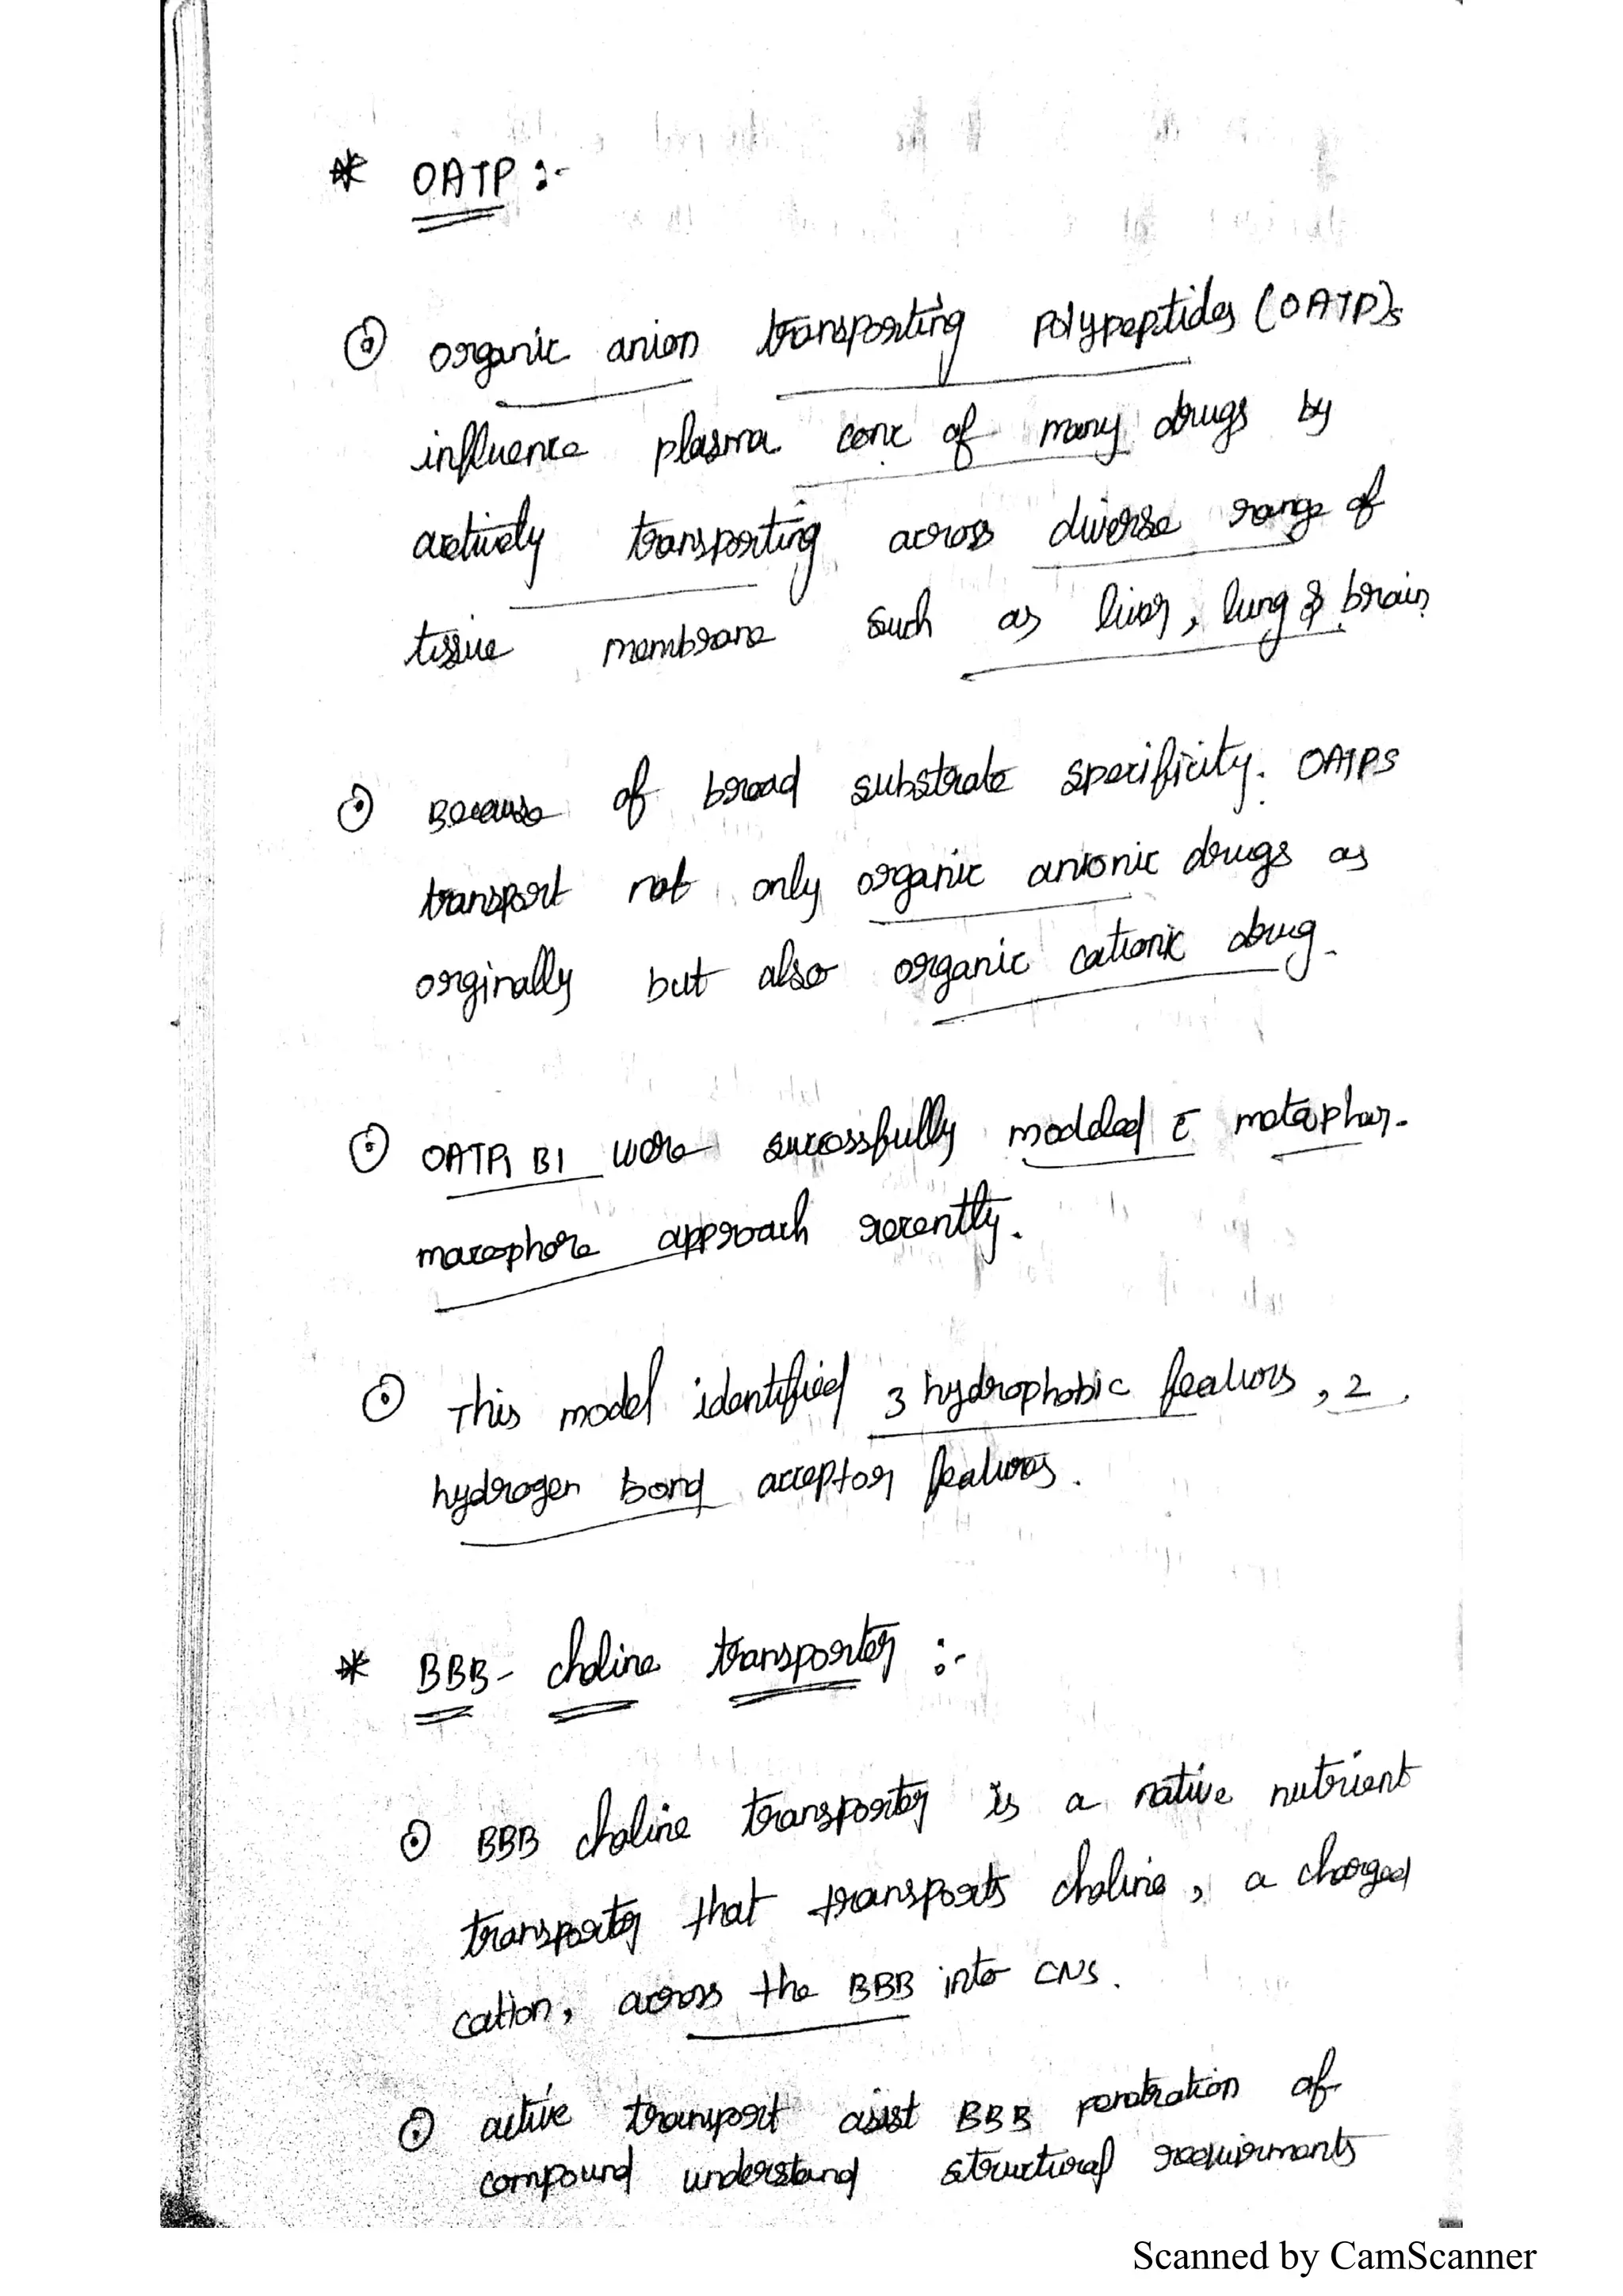 * OATP :-
organic anion transporting polypeptides (OATP)s
influence plasma conc of many drugs by
actively transporting across diverse range of
tissue membrane such as liver, lung & brain
Because of broad substrate specificity. OATPS
transport not only organic anionic drugs as
orginally but also organic cationic drug.
OATP1B1 were successfully modeled c̄ metaphar-
macophore approach recently.
This model identified 3 hydrophobic features, 2
hydrogen bond acceptor features.
* BBB- choline transporter :-
BBB choline transporter is a native nutrient
transporter that transports choline, a charged
cation, across the BBB into CNS.
active transport assist BBB penetration of
compound understand structural requirments
Scanned by CamScanner